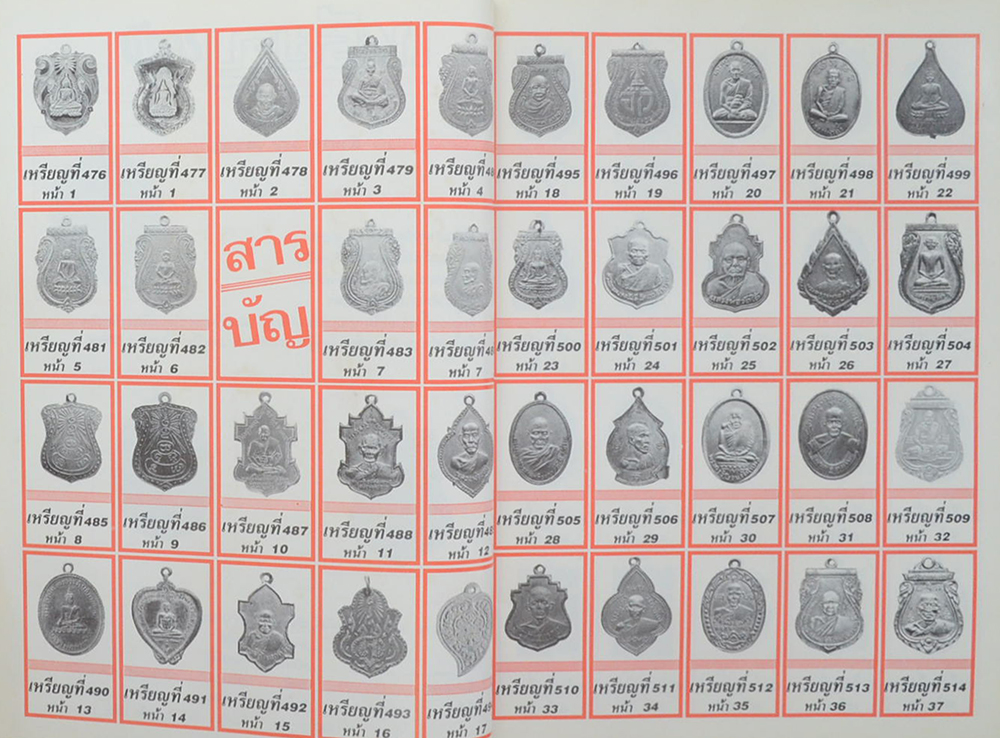 เหรียญที่476
หน้า 1
เหรียญที่477
หน้า 1
เหรียญที่478
หน้า 2
เหรียญที่479
หน้า 3
เหรียญที่
หน้า 4
เหรียญที่481
หน้า 5
เหรียญที่482
หน้า 6
สาร
บัญ
เหรียญที่483
หน้า 7
เหรียญที่
หน้า 7
เหรียญที่485
หน้า 8
เหรียญที่486
หน้า 9
เหรียญที่487
หน้า 10
เหรียญที่488
หน้า 11
เหรียญที่
หน้า 12
เหรียญที่490
หน้า 13
เหรียญที่491
หน้า 14
เหรียญที่492
หน้า 15
เหรียญที่493
หน้า 16
เหรียญที่
หน้า 17
เหรียญที่495
หน้า 18
เหรียญที่496
หน้า 19
เหรียญที่497
หน้า 20
เหรียญที่498
หน้า 21
เหรียญที่499
หน้า 22
เหรียญที่500
หน้า 23
เหรียญที่501
หน้า 24
เหรียญที่502
หน้า 25
เหรียญที่503
หน้า 26
เหรียญที่504
หน้า 27
เหรียญที่505
หน้า 28
เหรียญที่506
หน้า 29
เหรียญที่507
หน้า 30
เหรียญที่508
หน้า 31
เหรียญที่509
หน้า 32
เหรียญที่510
หน้า 33
เหรียญที่511
หน้า 34
เหรียญที่512
หน้า 35
เหรียญที่513
หน้า 36
เหรียญที่514
หน้า 37